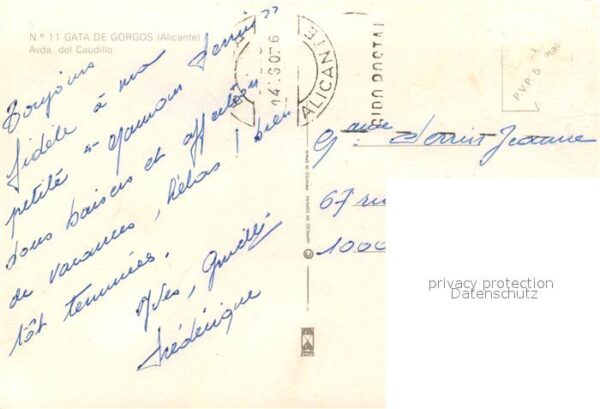 N.º 11 GATA DE GORGOS (Alicante)
Avda. del Caudillo
Toujours
fidèle à ma
petite "gamou Jenny"
bons baisers et affection
de vacances, hélas! bien
tôt terminées.
Yves,
Frédérique
14.
ALICANTE
POSTAL
P.V.P. 5
IMPRESO EN ESPAÑA PRINTED IN SPAIN
Jeanne
67 ru
1000
privacy protection
Datenschutz